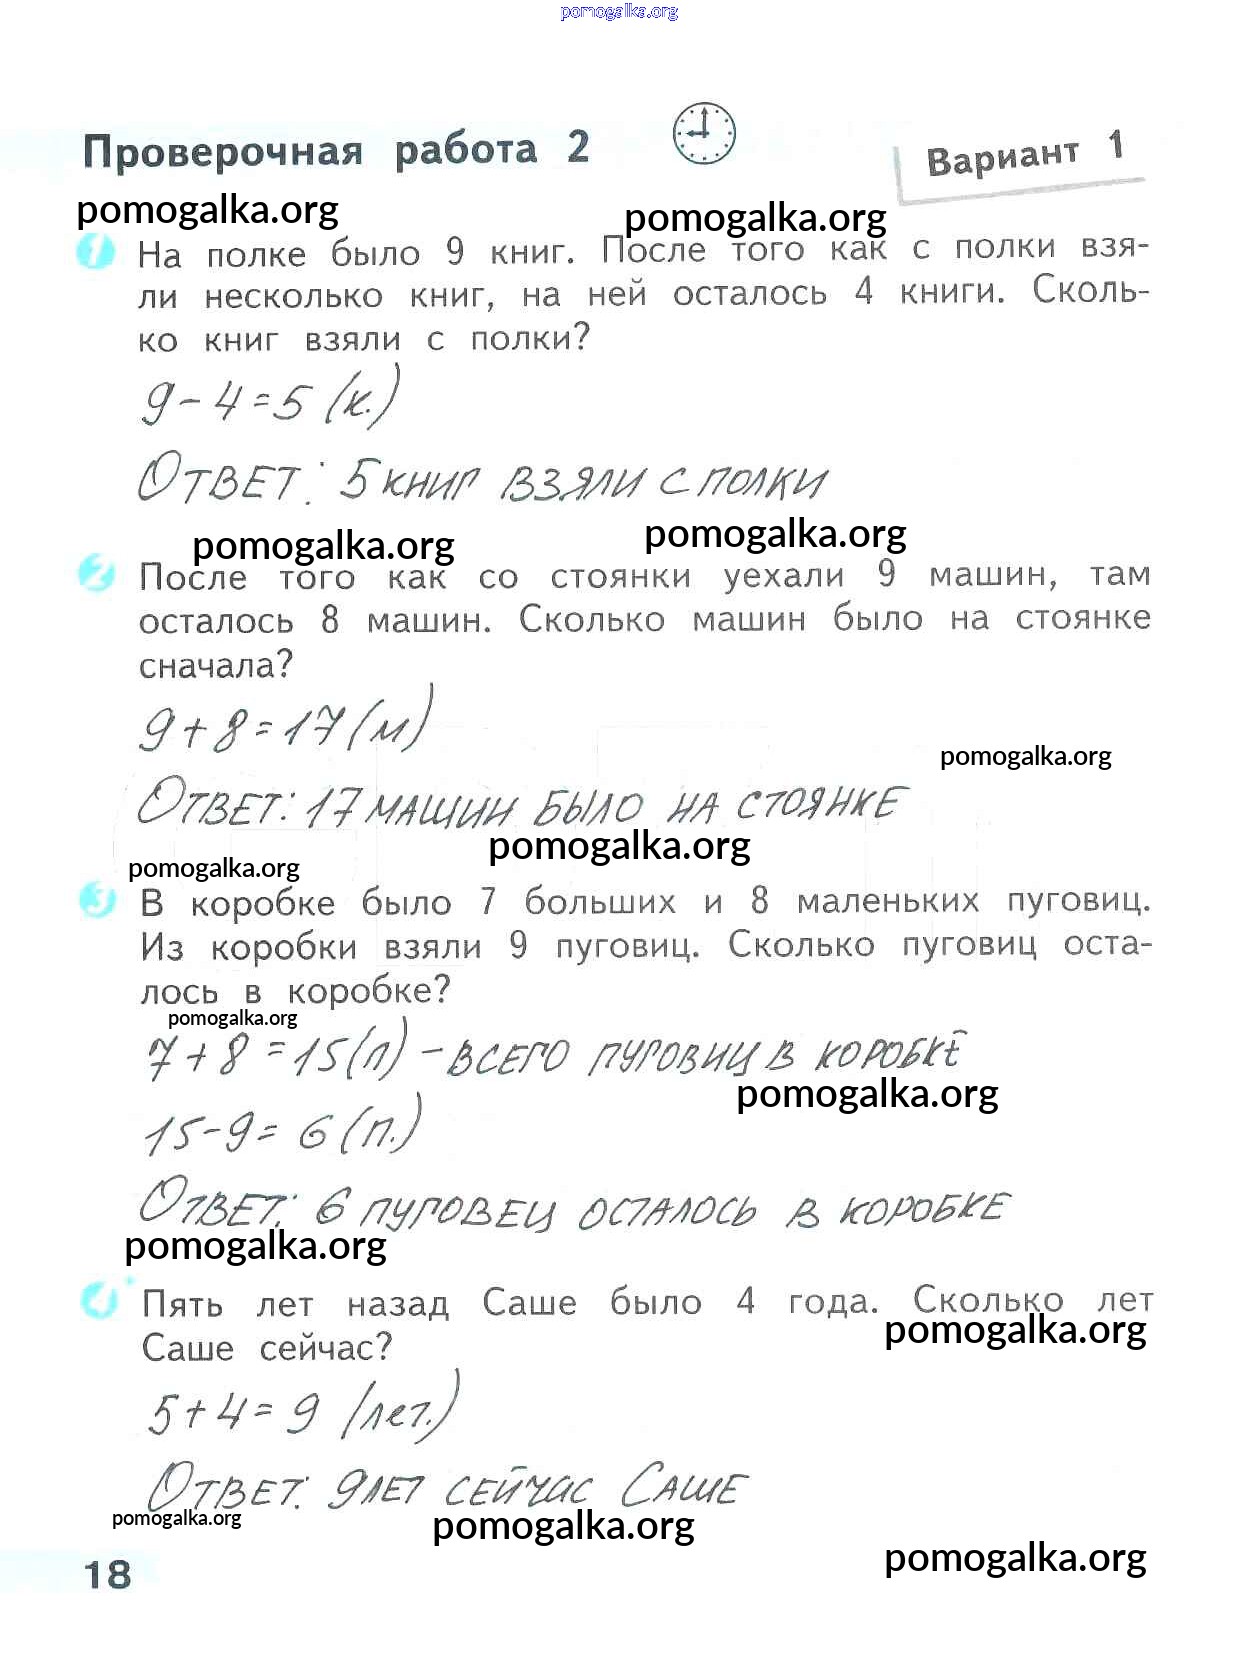 pomogalka.org
Проверочная работа 2
Вариант 1
pomogalka.org
pomogalka.org
1 На полке было 9 книг. После того как с полки взя-
ли несколько книг, на ней осталось 4 книги. Сколь-
ко книг взяли с полки?
9-4=5 (к.)
Ответ: 5 книг взяли с полки
pomogalka.org
pomogalka.org
2 После того как со стоянки уехали 9 машин, там
осталось 8 машин. Сколько машин было на стоянке
сначала?
9+8=17 (м)
pomogalka.org
Ответ: 17 машин было на стоянке
pomogalka.org
pomogalka.org
3 В коробке было 7 больших и 8 маленьких пуговиц.
Из коробки взяли 9 пуговиц. Сколько пуговиц оста-
лось в коробке?
pomogalka.org
7+8=15(п) - всего пуговиц в коробке
pomogalka.org
15-9=6 (п.)
Ответ: 6 пуговец осталось в коробке
pomogalka.org
4 Пять лет назад Саше было 4 года. Сколько лет
pomogalka.org
Саше сейчас?
5+4=9 (лет.)
Ответ: 9 лет сейчас Саше
pomogalka.org
pomogalka.org
pomogalka.org
18